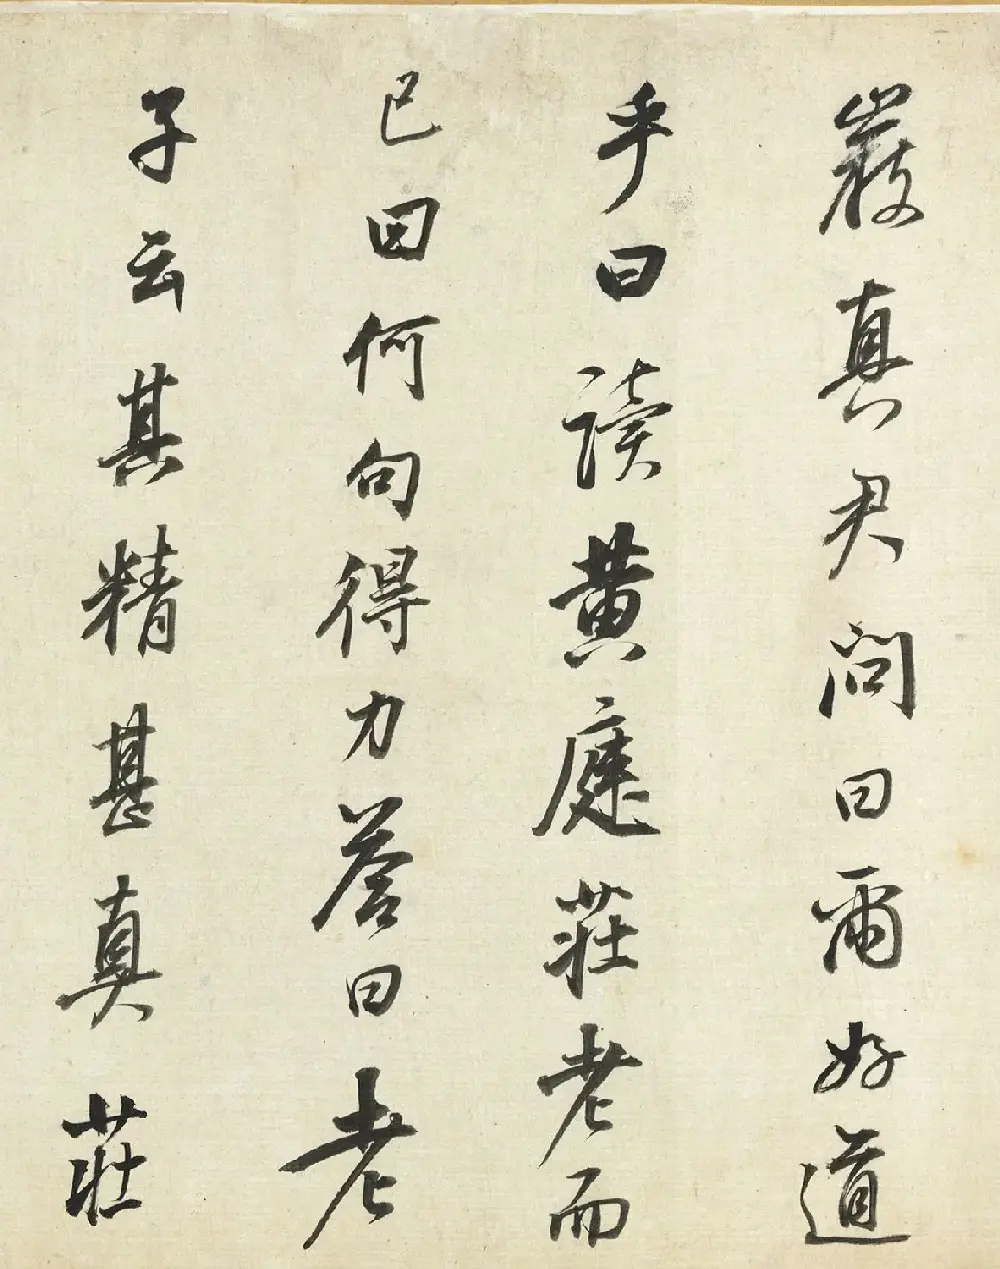 嚴真君問曰爾好道
乎曰讀黃庭莊老而
已回何句得力荅曰老
子云其精甚真莊